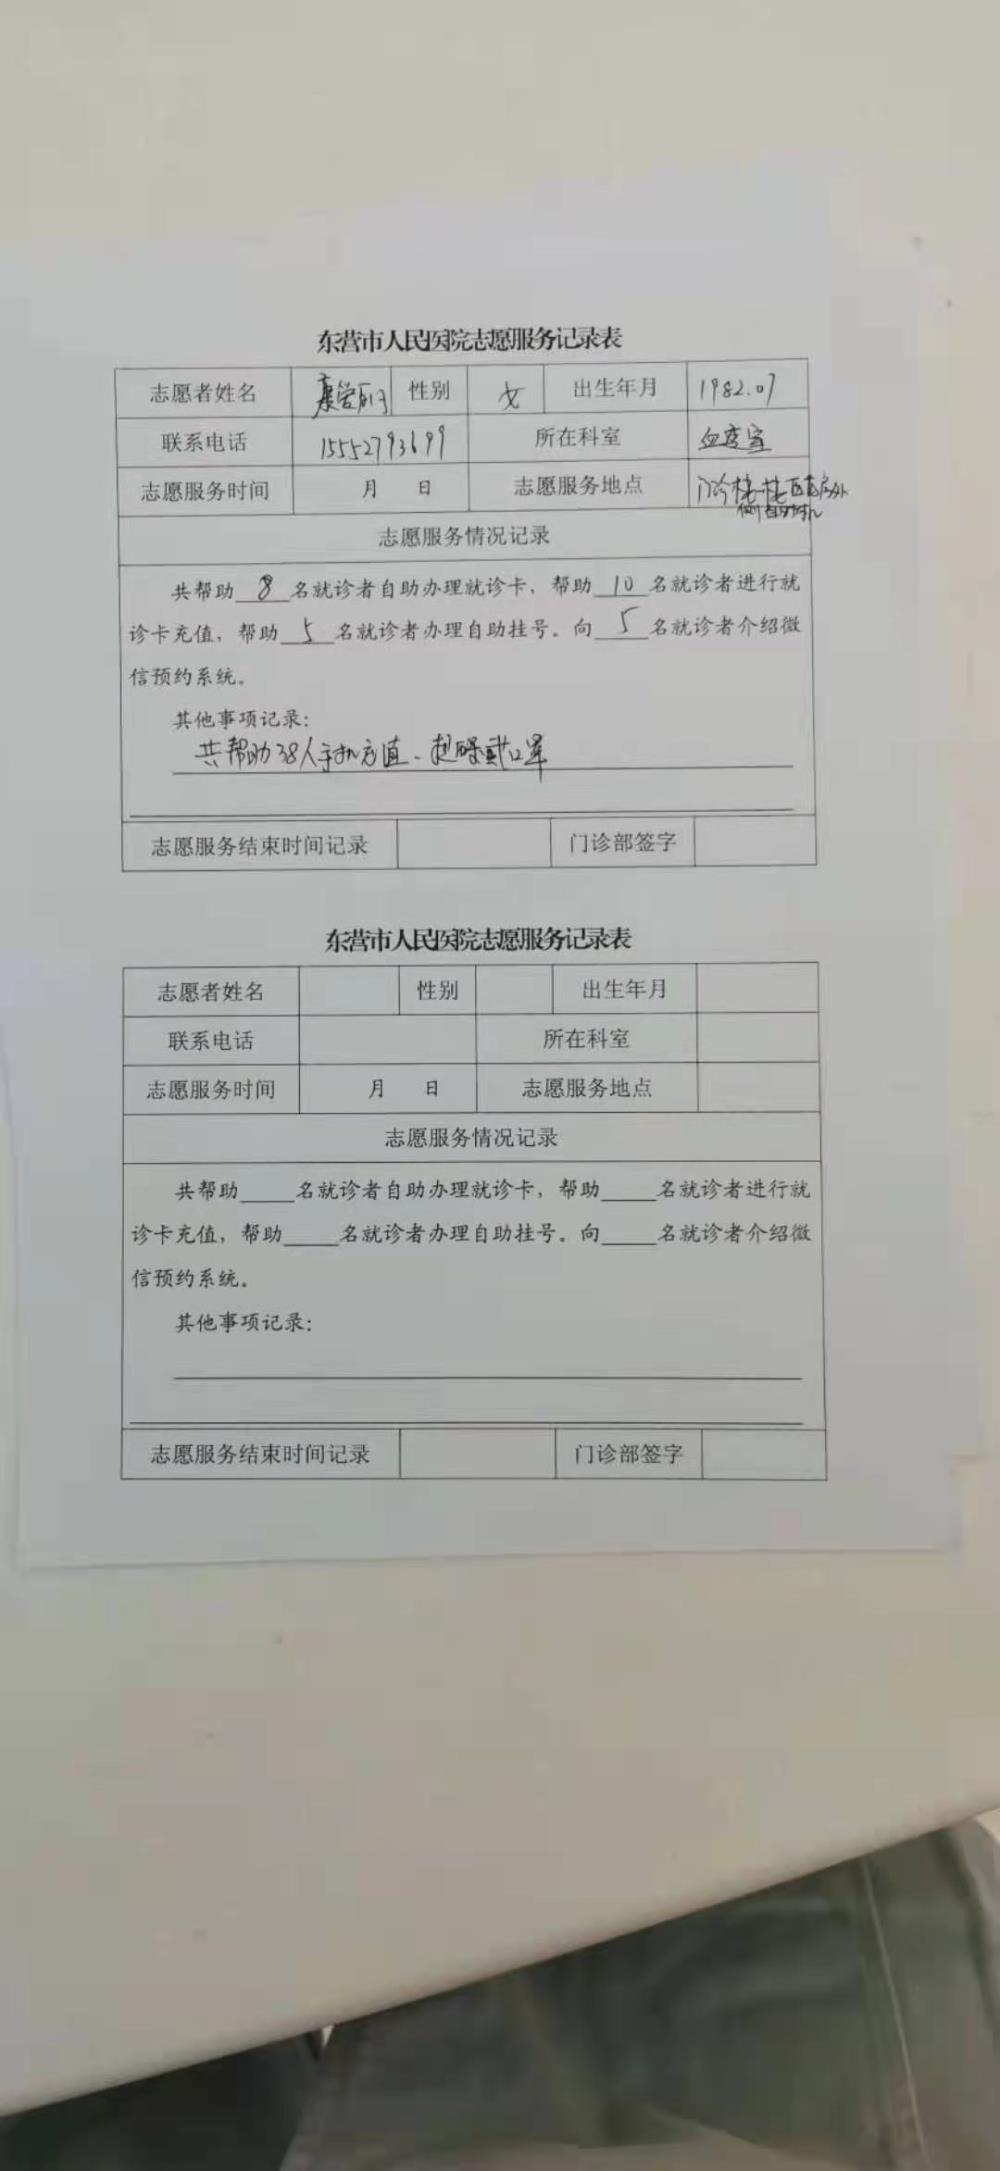 东营市人民医院志愿服务记录表
志愿者姓名 性别 女 出生年月 1982.07
联系电话 15552793699 所在科室
志愿服务时间 月 日 志愿服务地点 门诊楼一楼西药房外
侧自助机
志愿服务情况记录
共帮助 8 名就诊者自助办理就诊卡，帮助 10 名就诊者进行就
诊卡充值，帮助 5 名就诊者办理自助挂号。向 5 名就诊者介绍微
信预约系统。
其他事项记录：
共帮助38人手机充值、提醒戴口罩
志愿服务结束时间记录 门诊部签字
东营市人民医院志愿服务记录表
志愿者姓名 性别 出生年月
联系电话 所在科室
志愿服务时间 月 日 志愿服务地点
志愿服务情况记录
共帮助____名就诊者自助办理就诊卡，帮助____名就诊者进行就
诊卡充值，帮助____名就诊者办理自助挂号。向____名就诊者介绍微
信预约系统。
其他事项记录：
志愿服务结束时间记录 门诊部签字